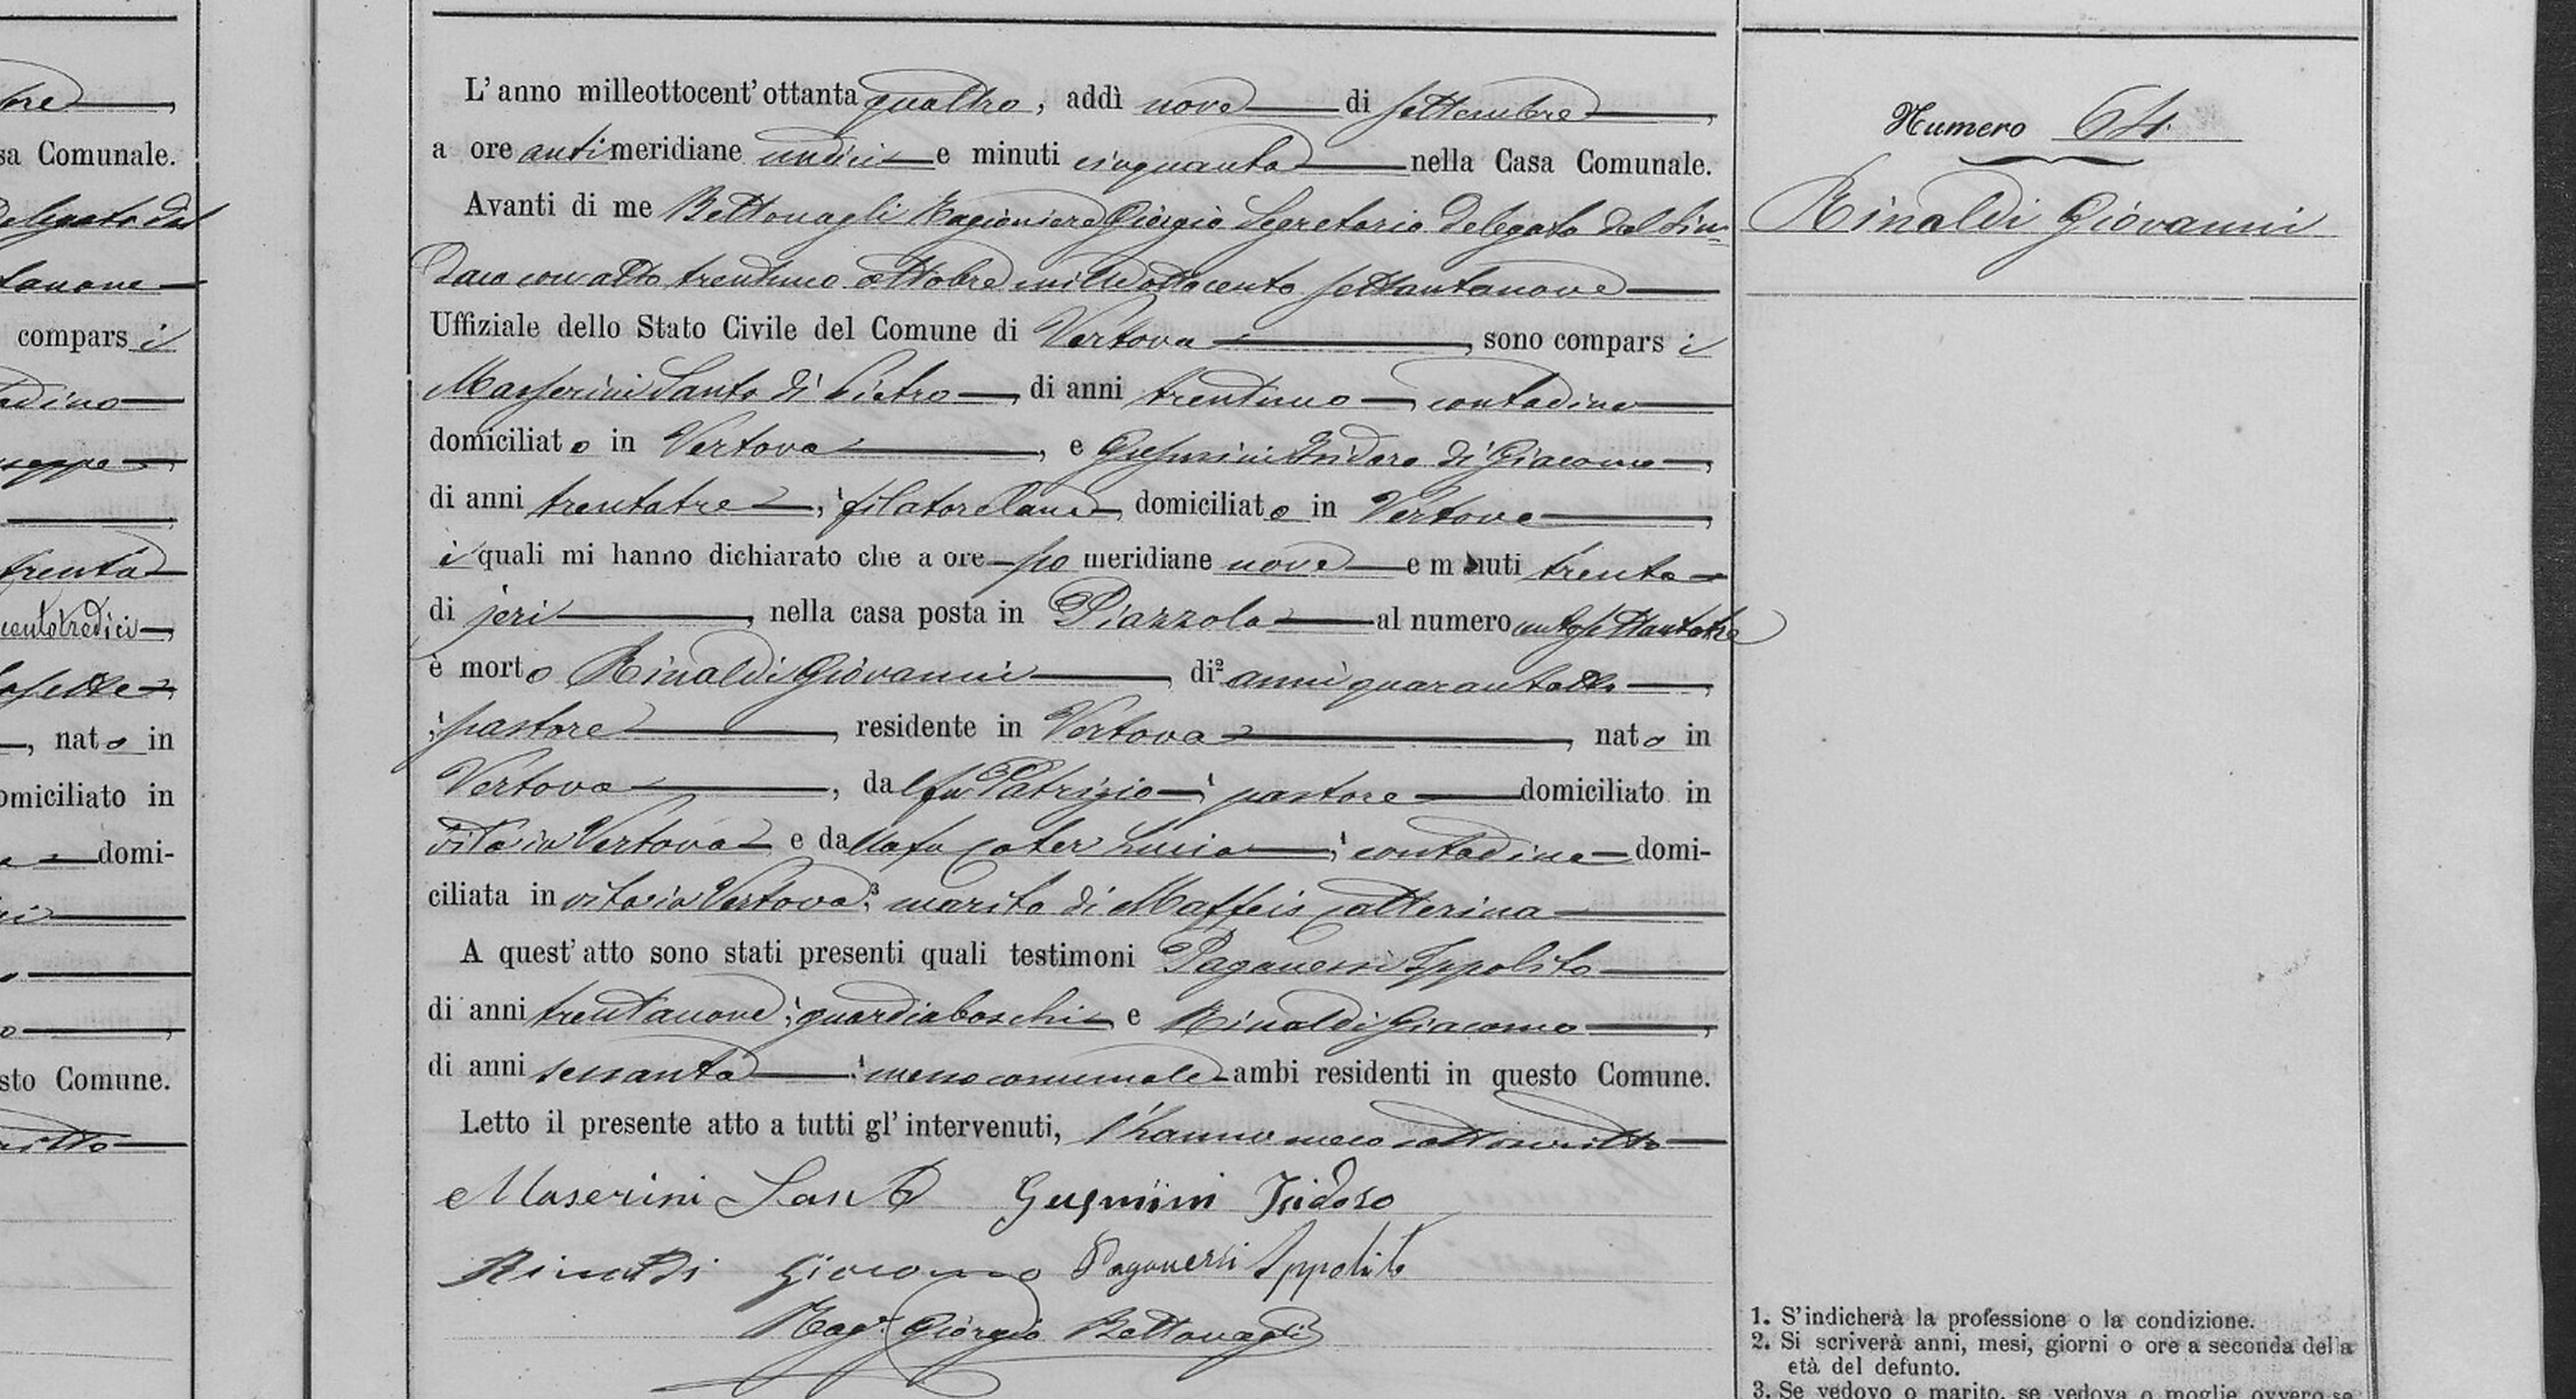 L'anno milleottocent'ottanta quattro, addì nove di settembre,
a ore antimeridiane undici e minuti cinquanta nella Casa Comunale.
Avanti di me Bettonagli Ragioniere Giorgio Segretario delegato dal Sin-
daco con atto trentuno ottobre milleottocento settantanove
Uffiziale dello Stato Civile del Comune di Vertova, sono compars i
Masserini Santo di Pietro, di anni trentuno, contadino
domiciliato in Vertova, e Gusmini Isidoro di Giacomo,
di anni trentatre, filatore lana, domiciliato in Vertova,
i quali mi hanno dichiarato che a ore po meridiane nove e minuti trenta
di jeri, nella casa posta in Piazzola al numero centosettantatre
è morto Rinaldi Giovanni, di² anni quarantotto,
¹pastore, residente in Vertova, nato in
Vertova, dal fu Patrizio ¹ pastore domiciliato in
vita in Vertova e dalla fu Cater Lucia, ¹ contadina domi-
ciliata in vita in Vertova; ³ marito di Maffeis Catterina
A quest'atto sono stati presenti quali testimoni Paganessi Ippolito
di anni trentanove, ¹guardiaboschi e Rinaldi Giacomo,
di anni sessanta ¹messo comunale ambi residenti in questo Comune.
Letto il presente atto a tutti gl'intervenuti, l'hanno meco sottoscritto
Maserini Santo Gusmini Isidoro
Rinaldi Giacomo Paganessi Ippolito
Rag.r Giorgio Bettonagli
Numero 64.
Rinaldi Giovanni
1. S'indicherà la professione o la condizione.
2. Si scriverà anni, mesi, giorni o ore a seconda della
età del defunto.
3. Se vedovo o marito, se vedova o moglie ovvero se
tore,
sa Comunale.
Delegato dal
tanove
compars i
tadino
seppe,
trenta
centotredici,
, nato in
omiciliato in
domi-
sto Comune.